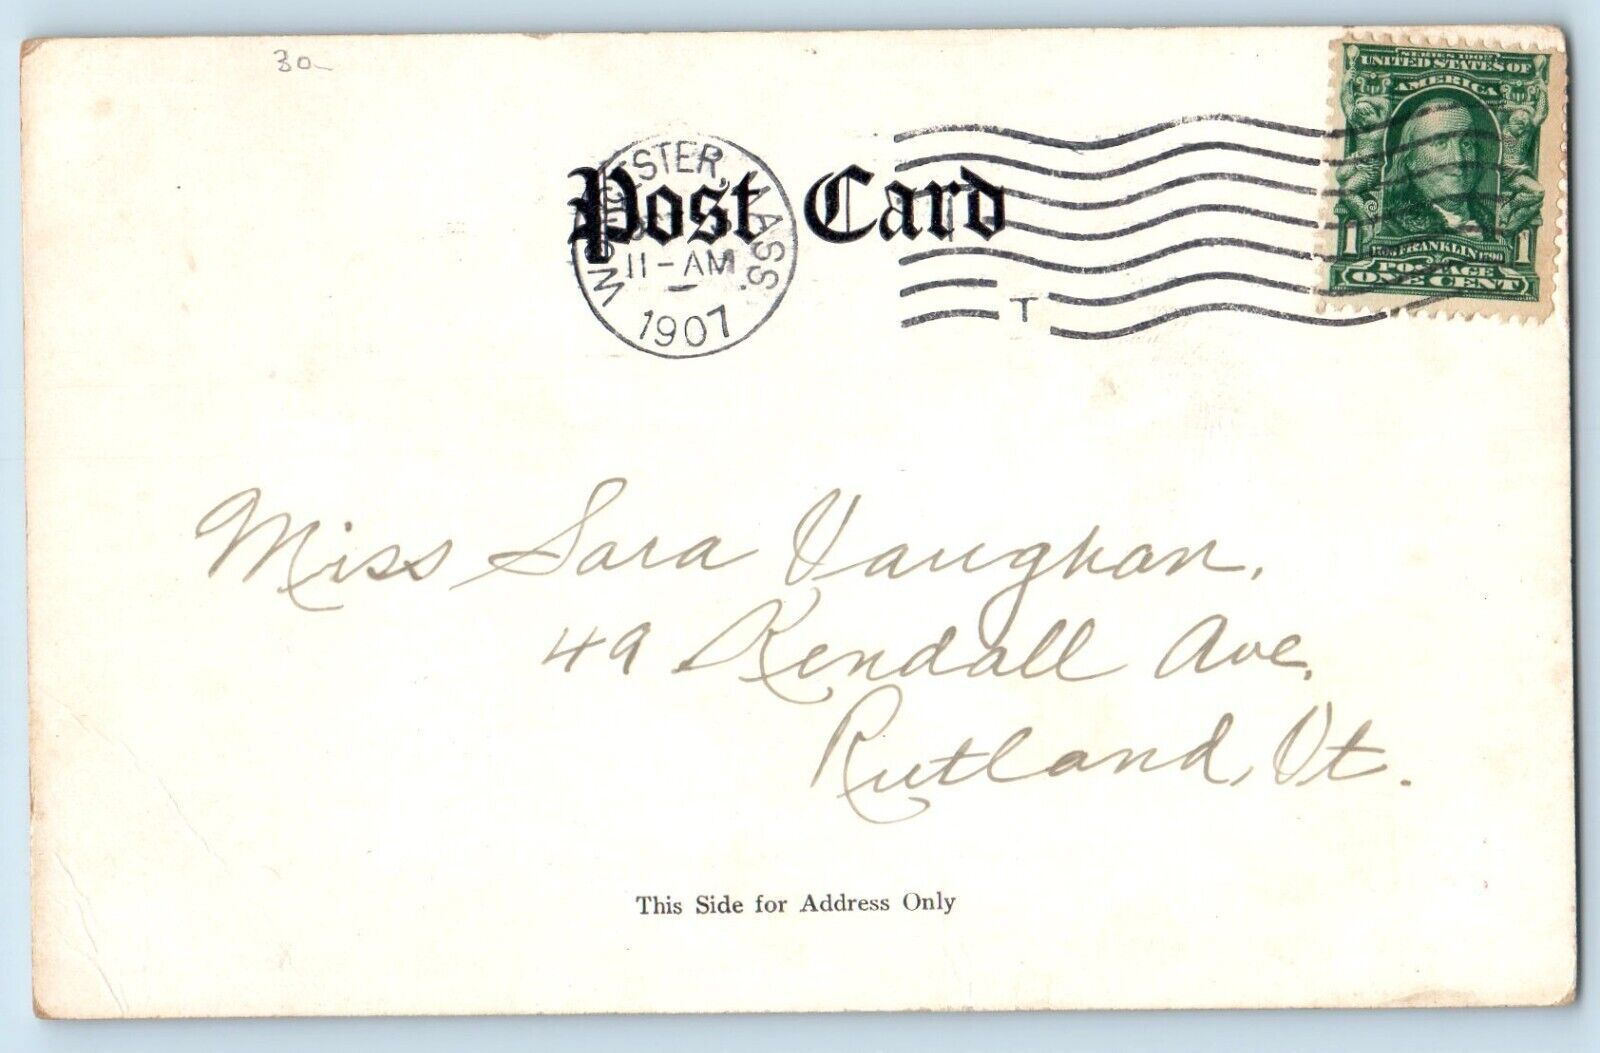 30
Post Card
WORCESTER, MASS.
11-AM
1907
T
SERIES 1902
UNITED STATES OF
AMERICA
1 1706 FRANKLIN 1790 1
POSTAGE
ONE CENT
Miss Sara Vaughan.
49 Kendall Ave.
Rutland, Vt.
This Side for Address Only